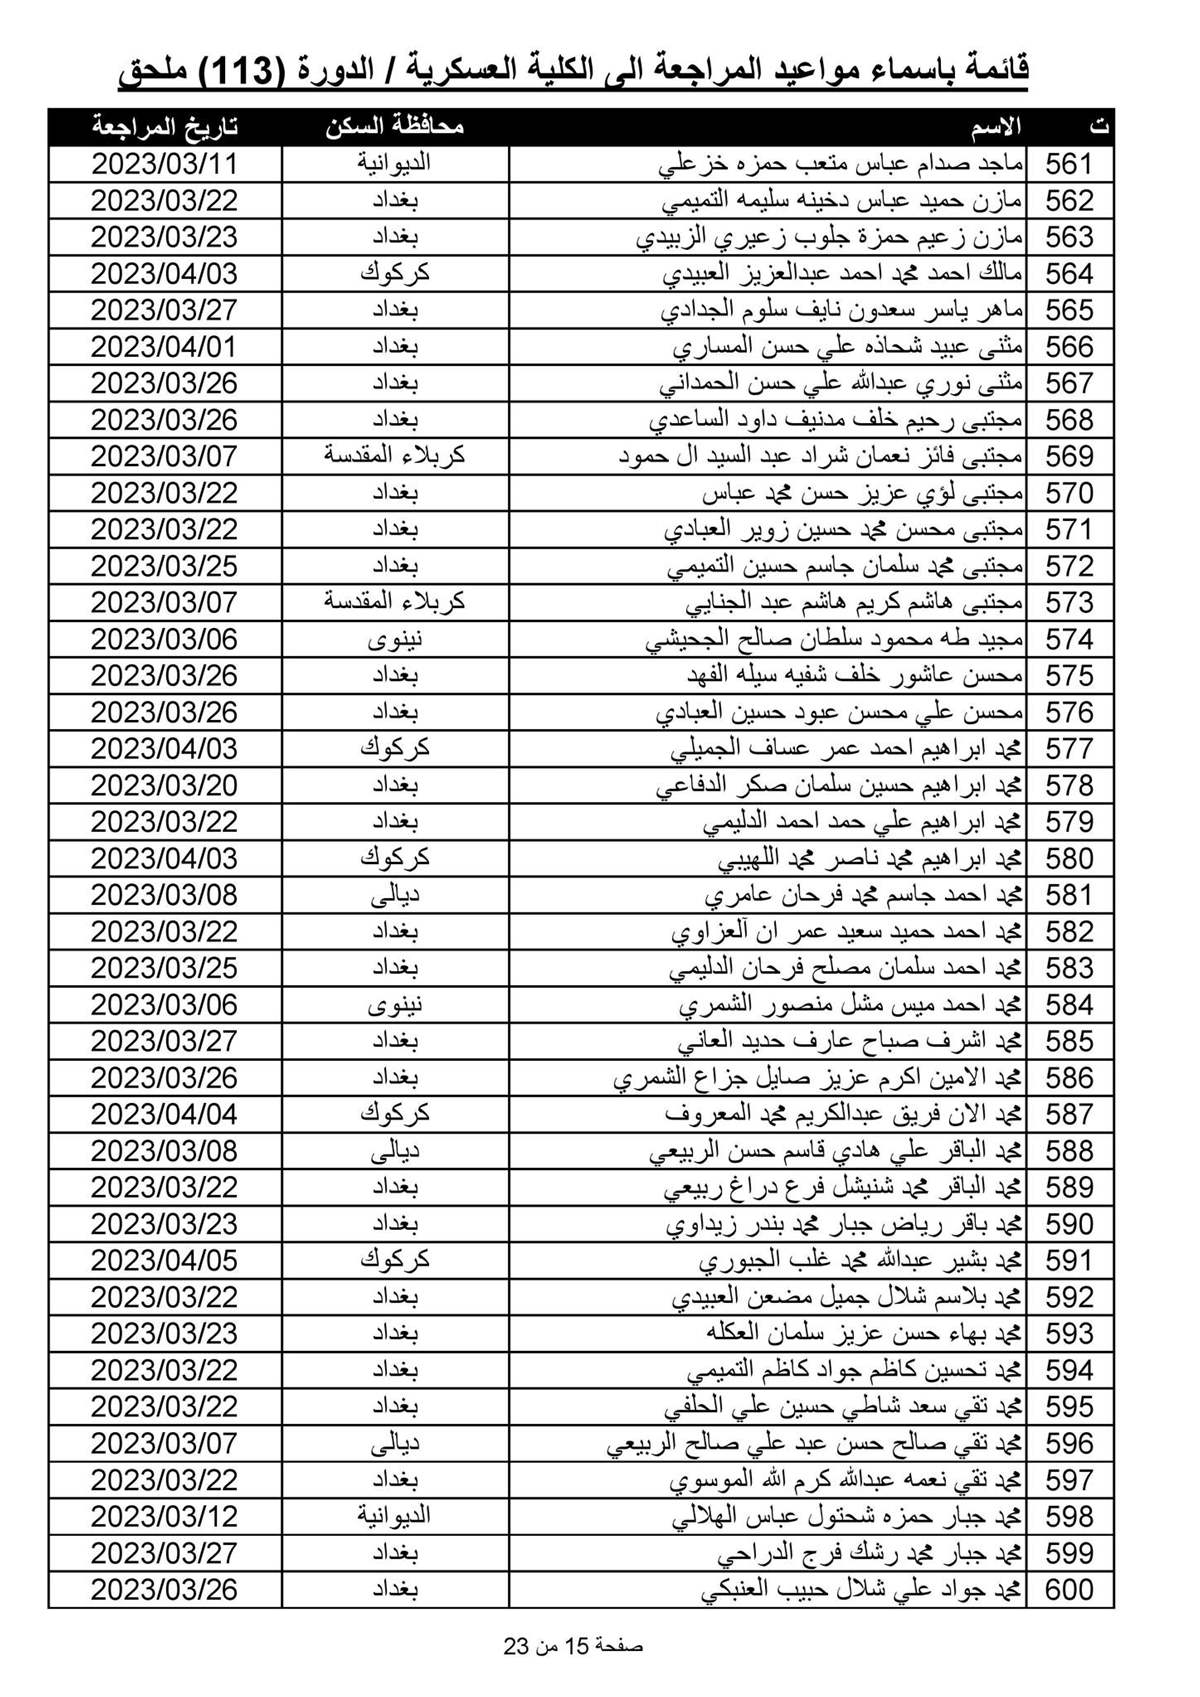 قائمة باسماء مواعيد المراجعة الى الكلية العسكرية / الدورة (113) ملحق
ت الاسم محافظة السكن تاريخ المراجعة
561 ماجد صدام عباس متعب حمزه خزعلي الديوانية 2023/03/11
562 مازن حميد عباس دخينه سليمه التميمي بغداد 2023/03/22
563 مازن زعيم حمزة جلوب زعيري الزبيدي بغداد 2023/03/23
564 مالك احمد محمد احمد عبدالعزيز العبيدي كركوك 2023/04/03
565 ماهر ياسر سعدون نايف سلوم الجدادي بغداد 2023/03/27
566 مثنى عبيد شحاذه علي حسن المساري بغداد 2023/04/01
567 مثنى نوري عبدالله علي حسن الحمداني بغداد 2023/03/26
568 مجتبى رحيم خلف مدنيف داود الساعدي بغداد 2023/03/26
569 مجتبى فائز نعمان شراد عبد السيد ال حمود كربلاء المقدسة 2023/03/07
570 مجتبى لؤي عزيز حسن محمد عباس بغداد 2023/03/22
571 مجتبى محسن محمد حسين زوير العبادي بغداد 2023/03/22
572 مجتبى محمد سلمان جاسم حسين التميمي بغداد 2023/03/25
573 مجتبى هاشم كريم هاشم عبد الجنايي كربلاء المقدسة 2023/03/07
574 مجيد طه محمود سلطان صالح الجحيشي نينوى 2023/03/06
575 محسن عاشور خلف شفيه سيله الفهد بغداد 2023/03/26
576 محسن علي محسن عبود حسين العبادي بغداد 2023/03/26
577 محمد ابراهيم احمد عمر عساف الجميلي كركوك 2023/04/03
578 محمد ابراهيم حسين سلمان صكر الدفاعي بغداد 2023/03/20
579 محمد ابراهيم علي حمد احمد الدليمي بغداد 2023/03/22
580 محمد ابراهيم محمد ناصر محمد اللهيبي كركوك 2023/04/03
581 محمد احمد جاسم محمد فرحان عامري ديالى 2023/03/08
582 محمد احمد حميد سعيد عمر ان آلعزاوي بغداد 2023/03/22
583 محمد احمد سلمان مصلح فرحان الدليمي بغداد 2023/03/25
584 محمد احمد ميس مشل منصور الشمري نينوى 2023/03/06
585 محمد اشرف صباح عارف حديد العاني بغداد 2023/03/27
586 محمد الامين اكرم عزيز صايل جزاع الشمري بغداد 2023/03/26
587 محمد الان فريق عبدالكريم محمد المعروف كركوك 2023/04/04
588 محمد الباقر علي هادي قاسم حسن الربيعي ديالى 2023/03/08
589 محمد الباقر محمد شنيشل فرع دراغ ربيعي بغداد 2023/03/22
590 محمد باقر رياض جبار محمد بندر زيداوي بغداد 2023/03/23
591 محمد بشير عبدالله محمد غلب الجبوري كركوك 2023/04/05
592 محمد بلاسم شلال جميل مضعن العبيدي بغداد 2023/03/22
593 محمد بهاء حسن عزيز سلمان العكله بغداد 2023/03/23
594 محمد تحسين كاظم جواد كاظم التميمي بغداد 2023/03/22
595 محمد تقي سعد شاطي حسين علي الحلفي بغداد 2023/03/22
596 محمد تقي صالح حسن عبد علي صالح الربيعي ديالى 2023/03/07
597 محمد تقي نعمه عبدالله كرم الله الموسوي بغداد 2023/03/22
598 محمد جبار حمزه شحتول عباس الهلالي الديوانية 2023/03/12
599 محمد جبار محمد رشك فرج الدراحي بغداد 2023/03/27
600 محمد جواد علي شلال حبيب العنبكي بغداد 2023/03/26
صفحة 15 من 23